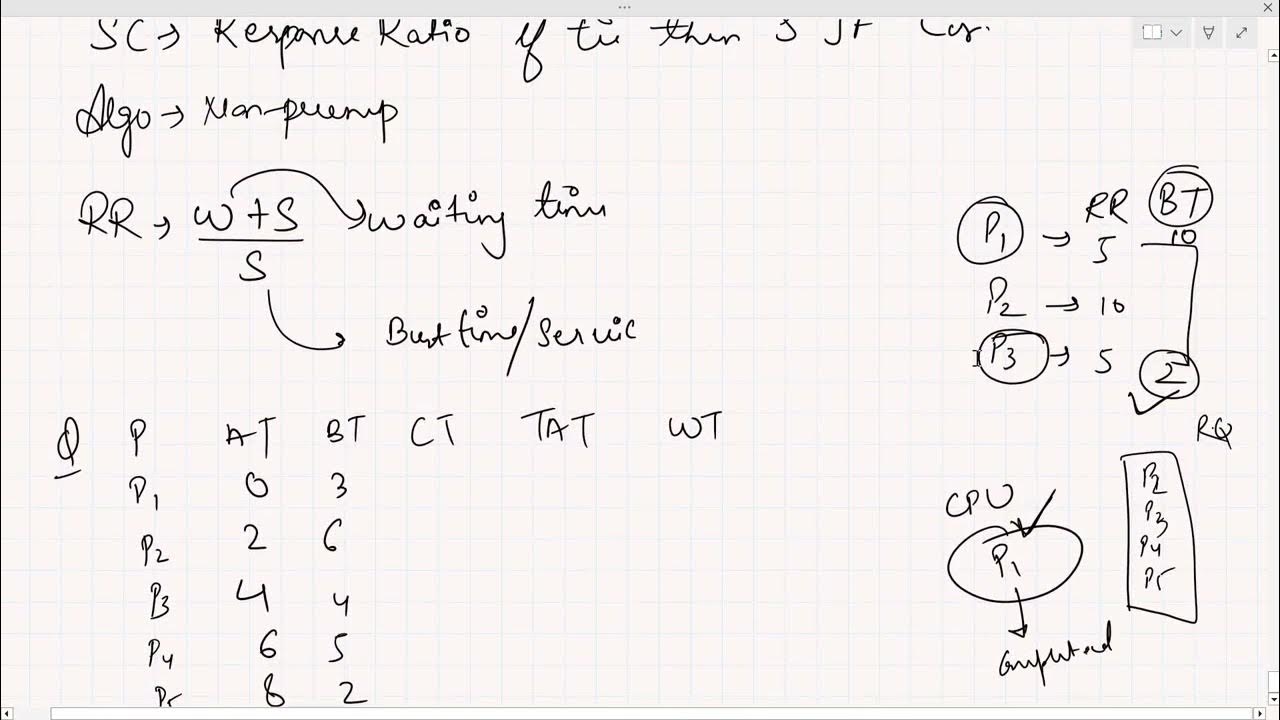 SC → Response Ratio if tie then SJF
Algo → Non-preemp
RR → W+S → waiting time
S
Burst time/Servic
RR BT
P1 → 5 10
P2 → 10
P3 → 5 2
RQ
P2
P3
P4
P5
CPU
P1
Q P AT BT CT TAT WT
P1 0 3
P2 2 6
P3 4 4
P4 6 5
P5 8 2